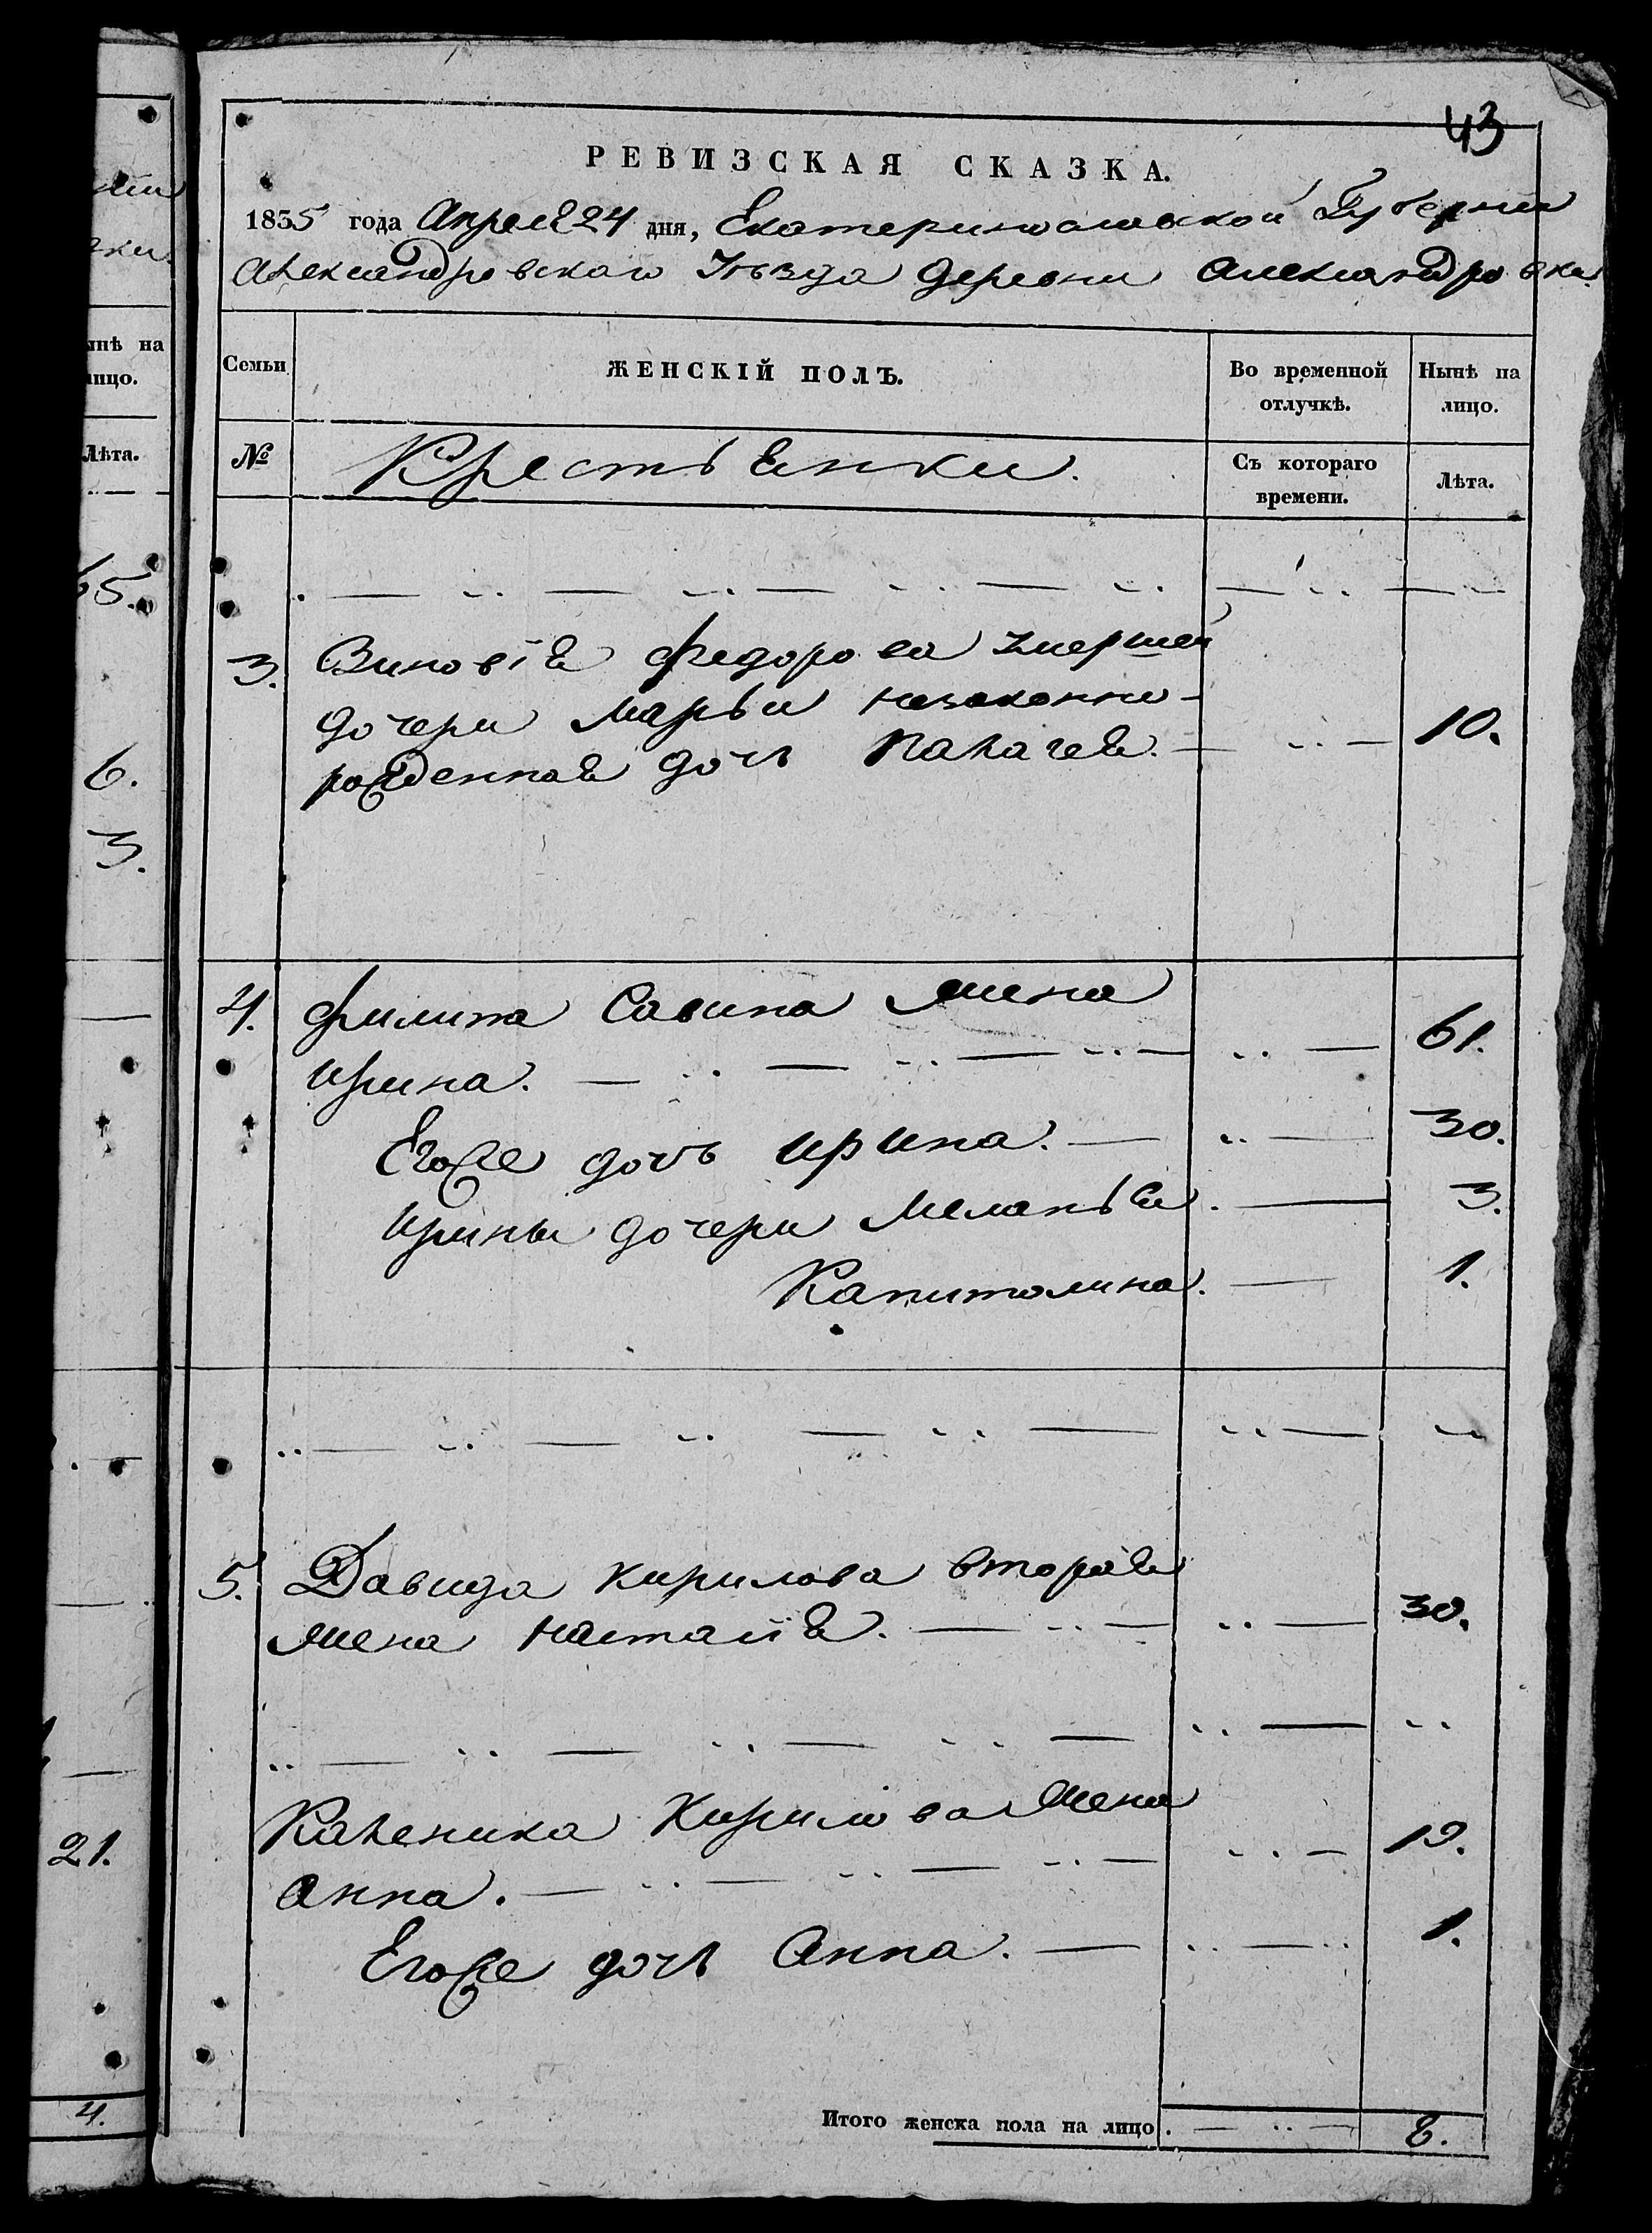 43
РЕВИЗСКАЯ СКАЗКА.
1835 года Апреля 24 дня, Екатеринославской Губернии
Александровскаго Уѣзда Деревни Александровки.
Семьи
ЖЕНСКІЙ ПОЛЪ.
Во временной отлучкѣ.
Нынѣ на лицо.
№
Крестьянки.
Съ котораго времени.
Лѣта.
3. Зиновія Федорова умершей
дочери Марьи незаконно-
рожденная дочь Палагея. 10.
4. Филипа Савина жена
Ирина. 61.
Егоже дочь Ирина. 30.
Ирины дочери Меланья. 3.
Капитолина. 1.
5. Давида Кирилова вторая
жена Наталія. 30.
Каленика Кирилова жена
Анна. 19.
Егоже дочь Анна. 1.
Итого женска пола на лицо. 8.
нѣ на
лицо.
Лѣта.
65.
6.
3.
21.
4.